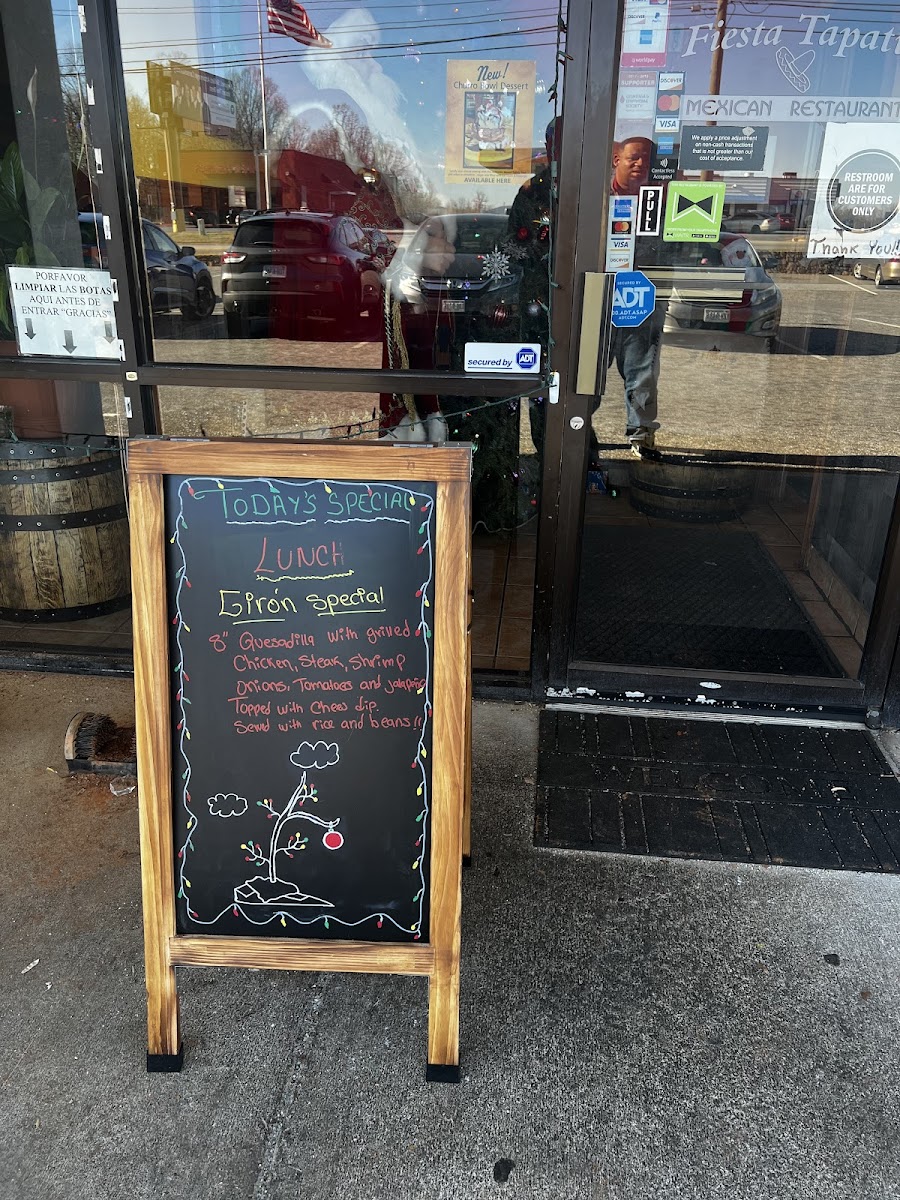 New!
Churro Bowl Dessert
AVAILABLE HERE
worldpay
SUPPORTER
DISCOVER
VISA
Contactless
Accepted
Fiesta Tapati
MEXICAN RESTAURANT
We apply a price adjustment
on non-cash transactions
that is not greater than our
cost of acceptance.
RESTROOM
ARE FOR
CUSTOMERS
ONLY
Thank You!!
PULL
VISA
DISCOVER
SECURED BY
ADT
ADT.COM
secured by ADT
PORFAVOR
LIMPIAR LAS BOTAS
AQUI ANTES DE
ENTRAR "GRACIAS"
TODAY'S SPECIAL
LUNCH
Girón special
8" Quesadilla with grilled
Chicken, Steak, Shrimp
Onions, Tomatoes and
Topped with Chees dip.
Served with rice and beans!!
WELCOME